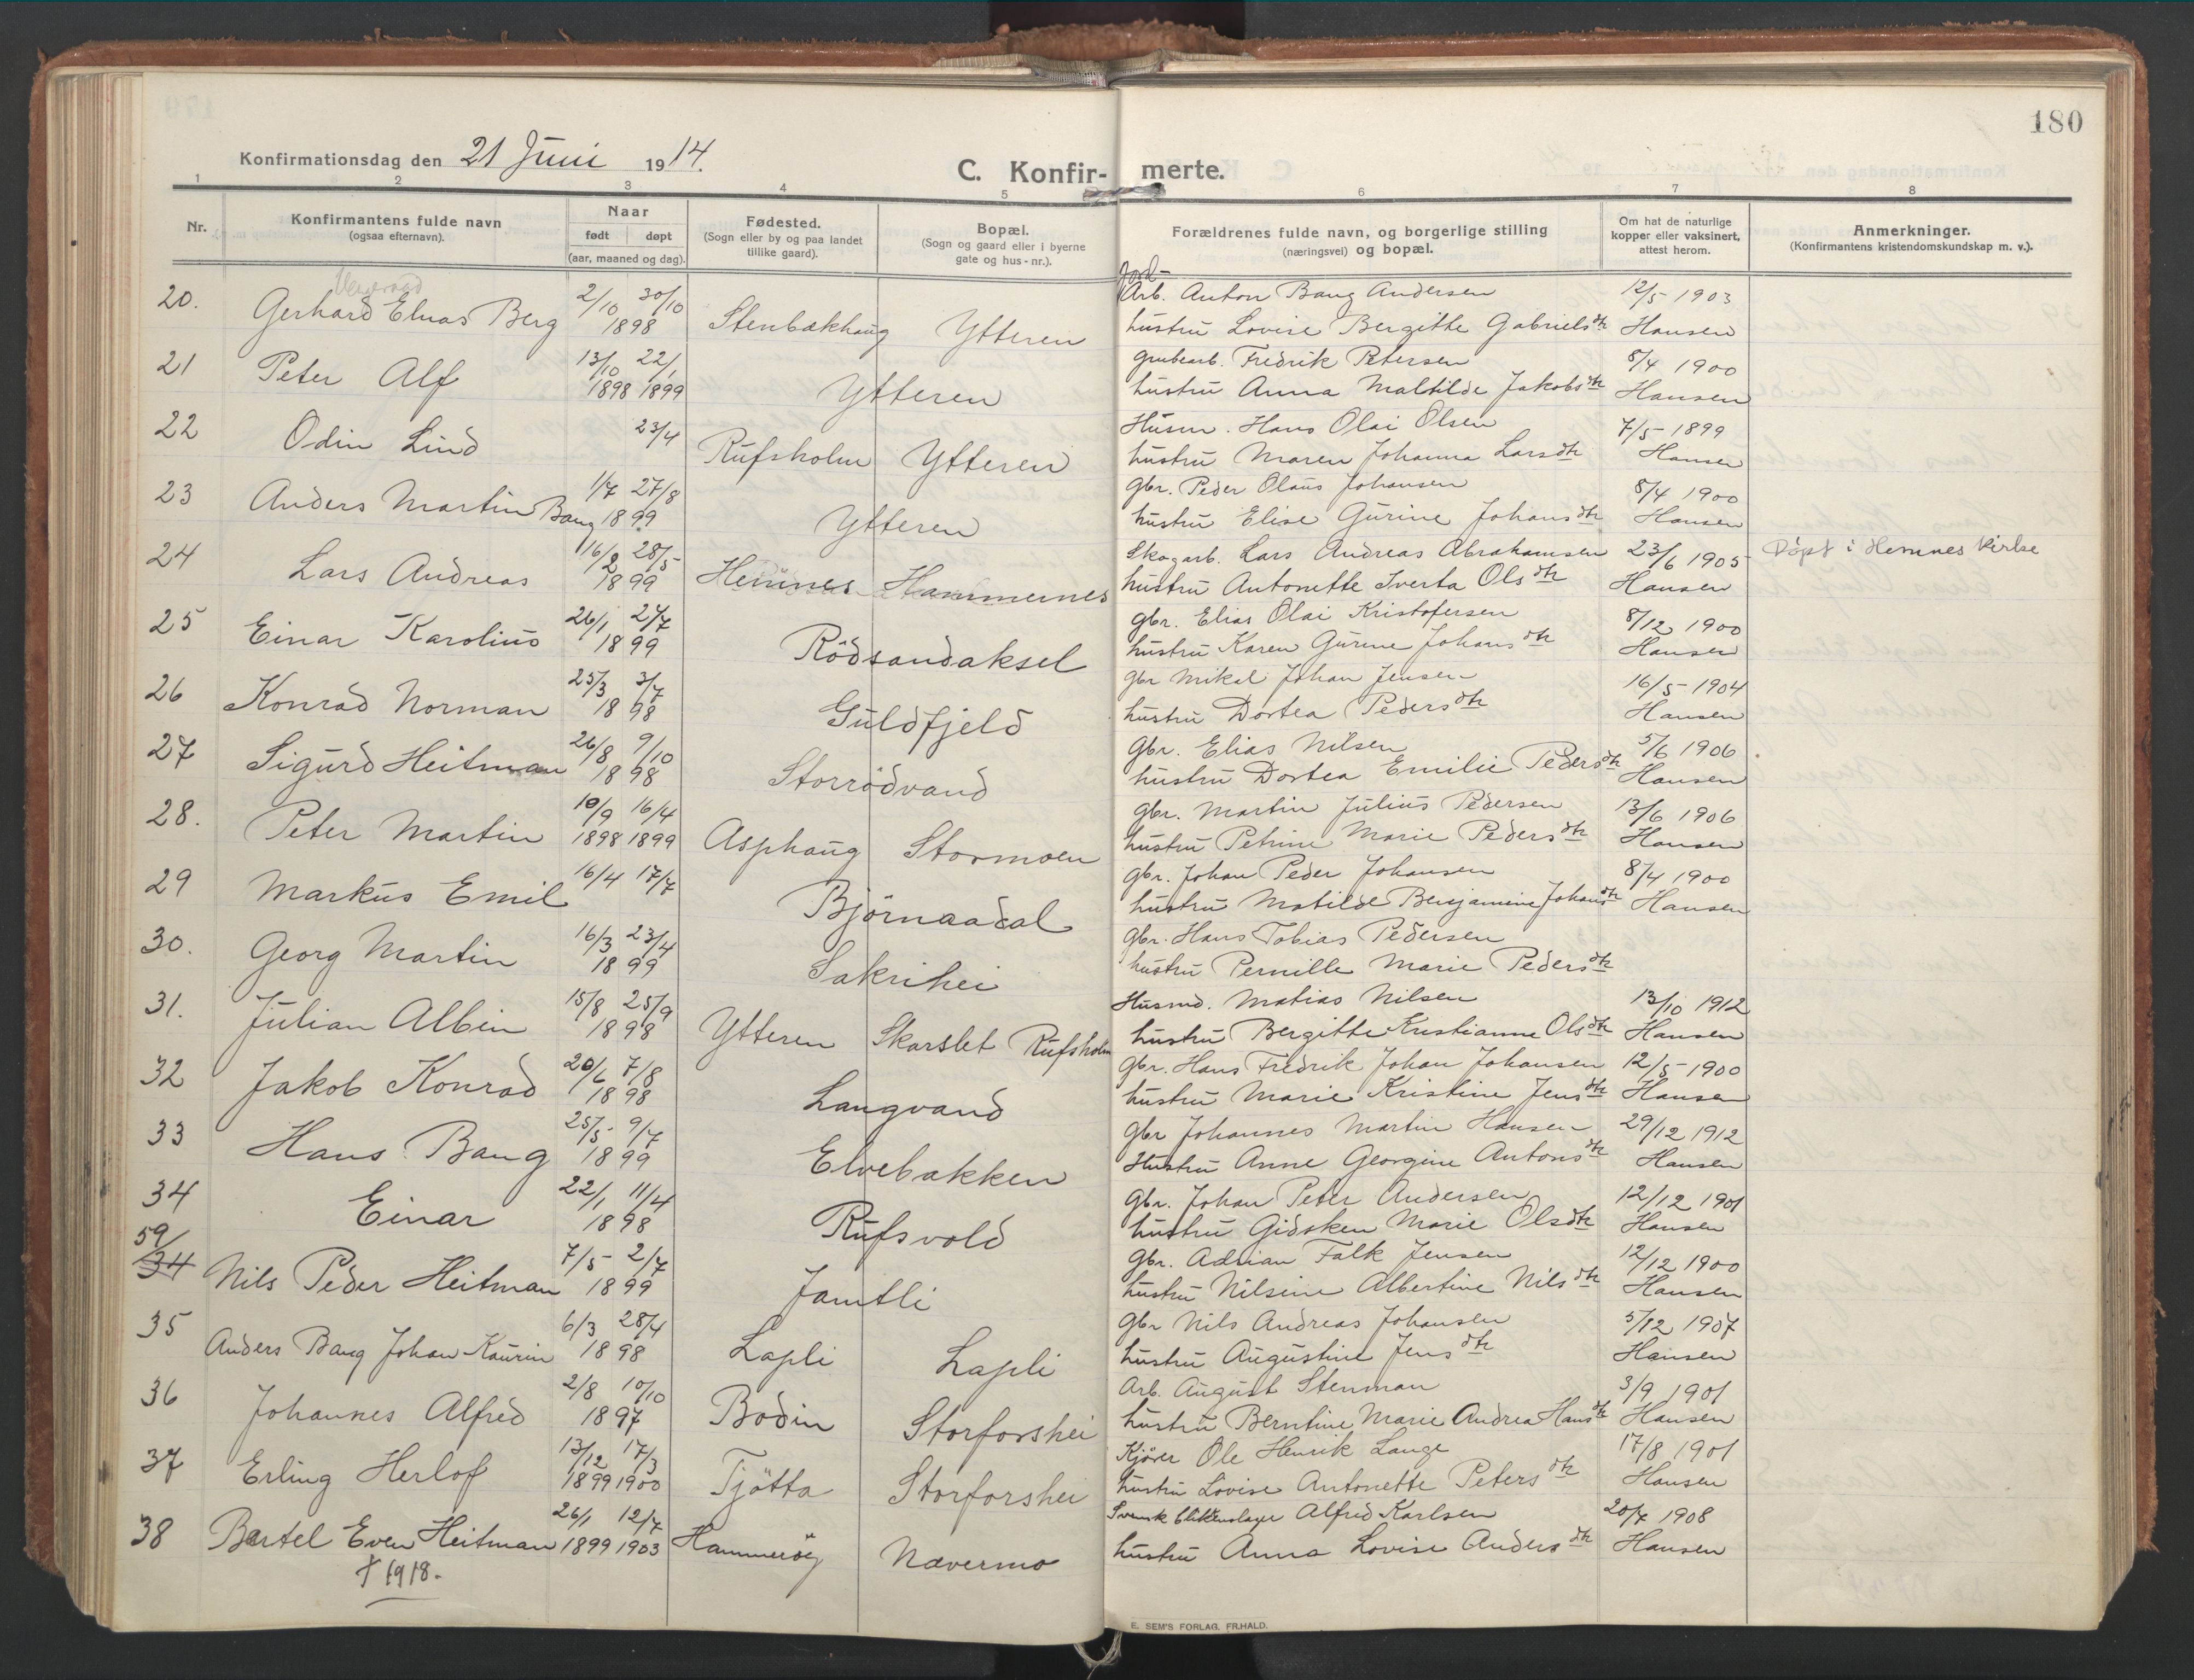 180
Konfirmationsdag den 21 Juni 1914.
C. Konfir- merte.
1 2 3 4 5 6 7 8
Nr.
Konfirmantens fulde navn
(ogsaa efternavn).
Naar
født døpt
(aar, maaned og dag).
Fødested.
(Sogn eller by og paa landet
tillike gaard).
Bopæl.
(Sogn og gaard eller i byerne
gate og hus-nr.).
Forældrenes fulde navn, og borgerlige stilling
(næringsvei) og bopæl.
Om hat de naturlige
kopper eller vaksinert,
attest herom.
Anmerkninger.
(Konfirmantens kristendomskundskap m. v.).
Jord-
20. Gerhard Elnas Berg 2/10 30/10 Stenbækhaug Ytteren Arb. Anton Bang Andersen 12/5 1903
1898 hustru Lovise Bergitte Gabrielsdtr Hansen
21 Peter Alf 13/10 22/1 Ytteren Grubearb. Fredrik Petersen 8/4 1900
1898 1899 hustru Anna Maltilde Jakobsdtr Hansen
22 Odin Lind 23/4 Rufsholm Ytteren Husm. Hans Olai Olsen 7/5 1899
hustru Maren Johanna Larsdtr Hansen
23 Anders Martin Bang 1/7 27/8 Ytteren gbr. Peder Olaus Johansen 8/4 1900
1899 hustru Elise Gurine Johansdtr Hansen
24 Lars Andreas 16/2 28/5 Hemnes Hammernes Skogarb. Lars Andreas Abrahamsen 23/6 1905 Døpt i Hemnes kirke
1899 hustru Antonette Iverta Olsdtr Hansen
25 Einar Karolius 26/1 2/7 Rödsandaksel gbr. Elias Olai Kristofersen 8/12 1900
1899 hustru Karen Gurine Johansdtr Hansen
26 Konrad Norman 25/3 3/7 Guldfjeld gbr Mikal Johan Jensen 16/5 1904
1898 hustru Dortea Pedersdtr Hansen
27 Sigurd Heitman 26/8 9/10 Storrödvand gbr. Elias Nilsen 5/6 1906
1898 hustru Dortea Emilie Pedersdtr Hansen
28. Peter Martin 10/9 16/4 Asphaug Stormoen gbr. Martin Julius Pedersen 13/6 1906
1898 1899 hustru Petrine Marie Pedersdtr Hansen
29 Markus Emil 16/4 17/7 Björnaadal gbr. Johan Peder Johansen 8/4 1900
hustru Matilde Benjamine Johansdtr Hansen
30. Georg Martin 16/3 23/4 Sakrihei gbr. Hans Tobias Pedersen
1899 hustru Pernille Marie Pedersdtr
31. Julian Albin 15/8 25/9 Ytteren Skarslet Rufsholm Husmd. Matias Nilsen 13/10 1912
1898 hustru Bergitte Kristianne Olsdtr Hansen
32 Jakob Konrad 20/6 7/8 Langvand gbr. Hans Fredrik Johan Johansen 12/5 1900
1898 hustru Marie Kristine Jensdtr Hansen
33 Hans Bang 25/5 9/7 Elvebakken gbr Johannes Martin Hansen 29/12 1912
1899 Hustru Anne Georgine Antonsdtr Hansen
34 Einar 22/1 11/4 Rufsvold gbr. Johan Peter Andersen 12/12 1901
1898 hustru Gidsken Marie Olsdtr Hansen
59/
34 Nils Peder Heitman 7/5 2/7 Jamtli gbr. Adrian Falk Jensen 12/12 1900
1899 hustru Nilsine Albertine Nilsdtr Hansen
35 Anders Bang Johan Kaurin 6/3 28/4 Lapli Lapli gbr Nils Andreas Johansen 5/12 1907
1898 hustru Augustine Jensdtr Hansen
36 Johannes Alfred 2/8 10/10 Bodin Storforshei Arb. August Stenman 3/9 1901
1897 hustru Berntine Marie Andrea Hansdtr Hansen
37 Erling Herlof 13/12 17/3 Tjötta Storforshei Kjörer Ole Henrik Lange 17/8 1901
1899 1900 hustru Lovise Antonette Petersdtr Hansen
38 Bertel Even Heitman 26/1 12/7 Hammeröy Nævermo Svensk blikkenslager Alfred Karlsen 20/7 1908
1899 1903 hustru Anna Lovise Andersdtr Hansen
† 1918.
E. SEM'S FORLAG, FR.HALD.